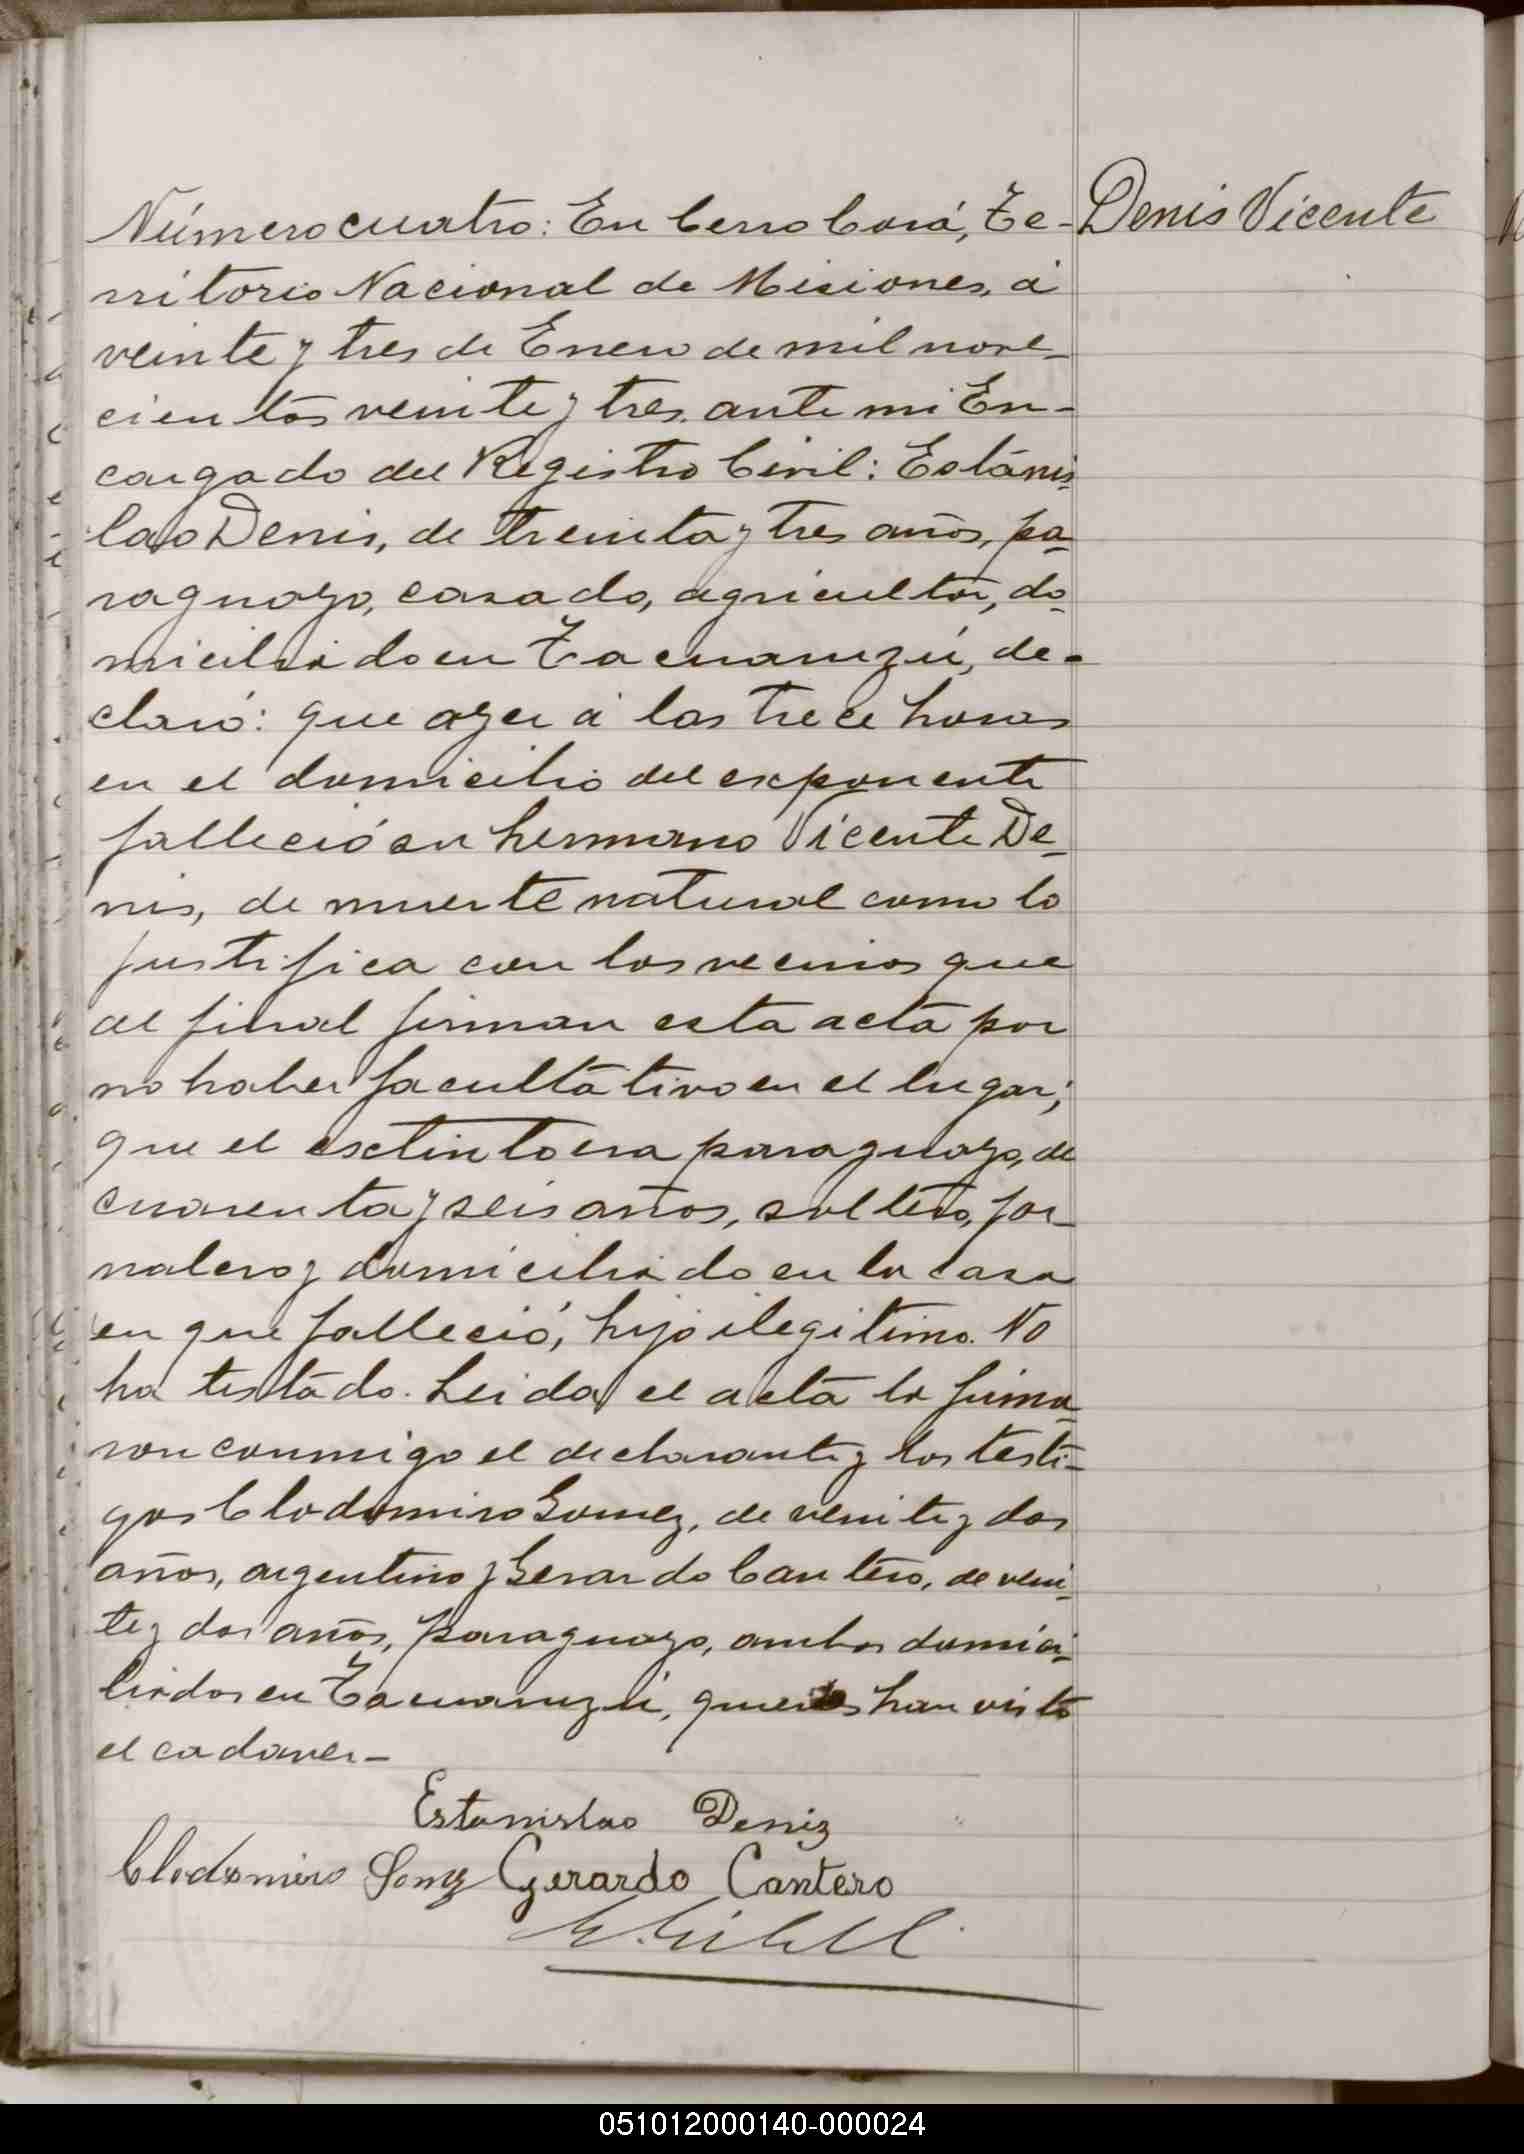 Número cuatro: En Cerro Corá, Te-
Denis Vicente
rritorio Nacional de Misiones, á
veinte y tres de Enero de mil nove-
cientos veinte y tres. ante mi En-
cargado del Registro Civil: Estánis-
lao Denis, de treinta y tres años, pa-
raguayo, casado, agricultor, do-
miciliado en Tacuaruzú, de-
claró: que ayer á las trece horas
en el domicilio del exponente
falleció su hermano Vicente De-
nis, de muerte natural como lo
justifica con los vecinos que
al final firman esta acta por
no haber facultativo en el lugar;
que el extinto era paraguayo, de
cuarenta y seis años, soltero, jor-
nalero y domiciliado en la casa
en que falleció, hijo ilegitimo. No
ha testado. Leida el acta la firma-
ron conmigo el declarante y los testi-
gos Clodomiro Gomez, de veinte y dos
años, argentino y Gerardo Cantero, de vein-
te y dos años, paraguayo, ambos domici-
liados en Tacuaruzú, quienes han visto
el cadaver-
Estanislao Deniz
Clodomiro Gomz Gerardo Cantero
051012000140-000024